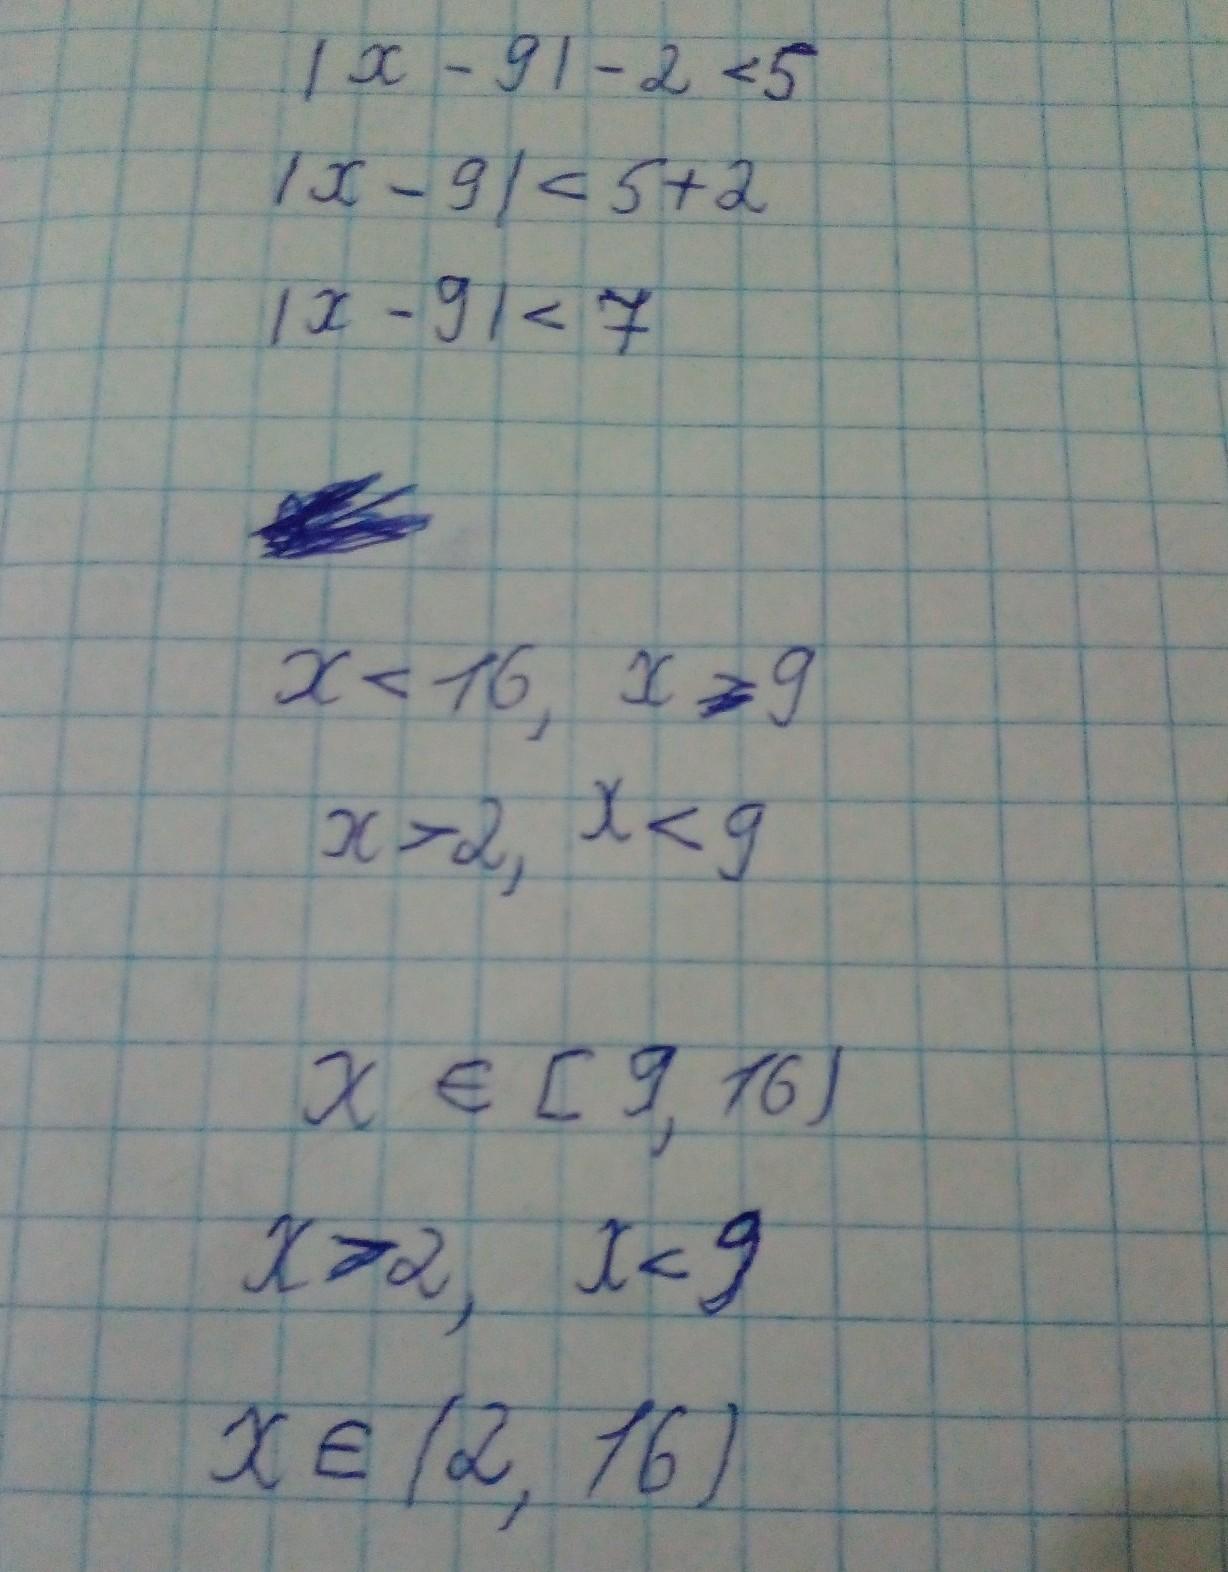 |x - 9| - 2 < 5
|x - 9| < 5 + 2
|x - 9| < 7
x < 16, x ⩾ 9
x > 2, x < 9
x ∈ [9, 16)
x > 2, x < 9
x ∈ (2, 16)